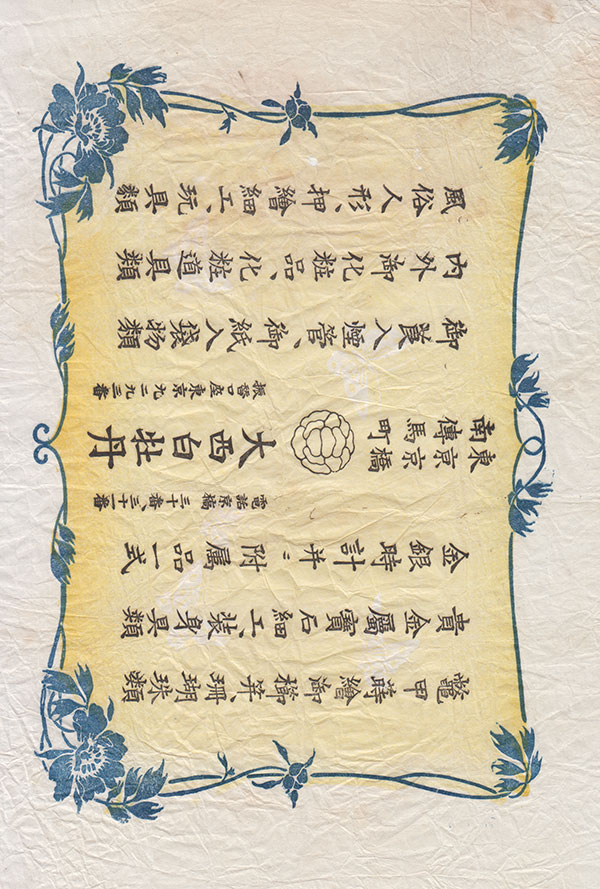 鼈甲蒔繪御櫛笄、珊瑚珠類
貴金屬寶石細工、裝身具類
金銀時計并ニ附属品一式
電話京橋三十番、三十一番
東京京橋
南傳馬町
大西白牡丹
振替口座東京九二九三番
御莨入煙管、御紙入袋物類
内外御化粧品、化粧道具類
風俗人形、押繪細工、玩具類